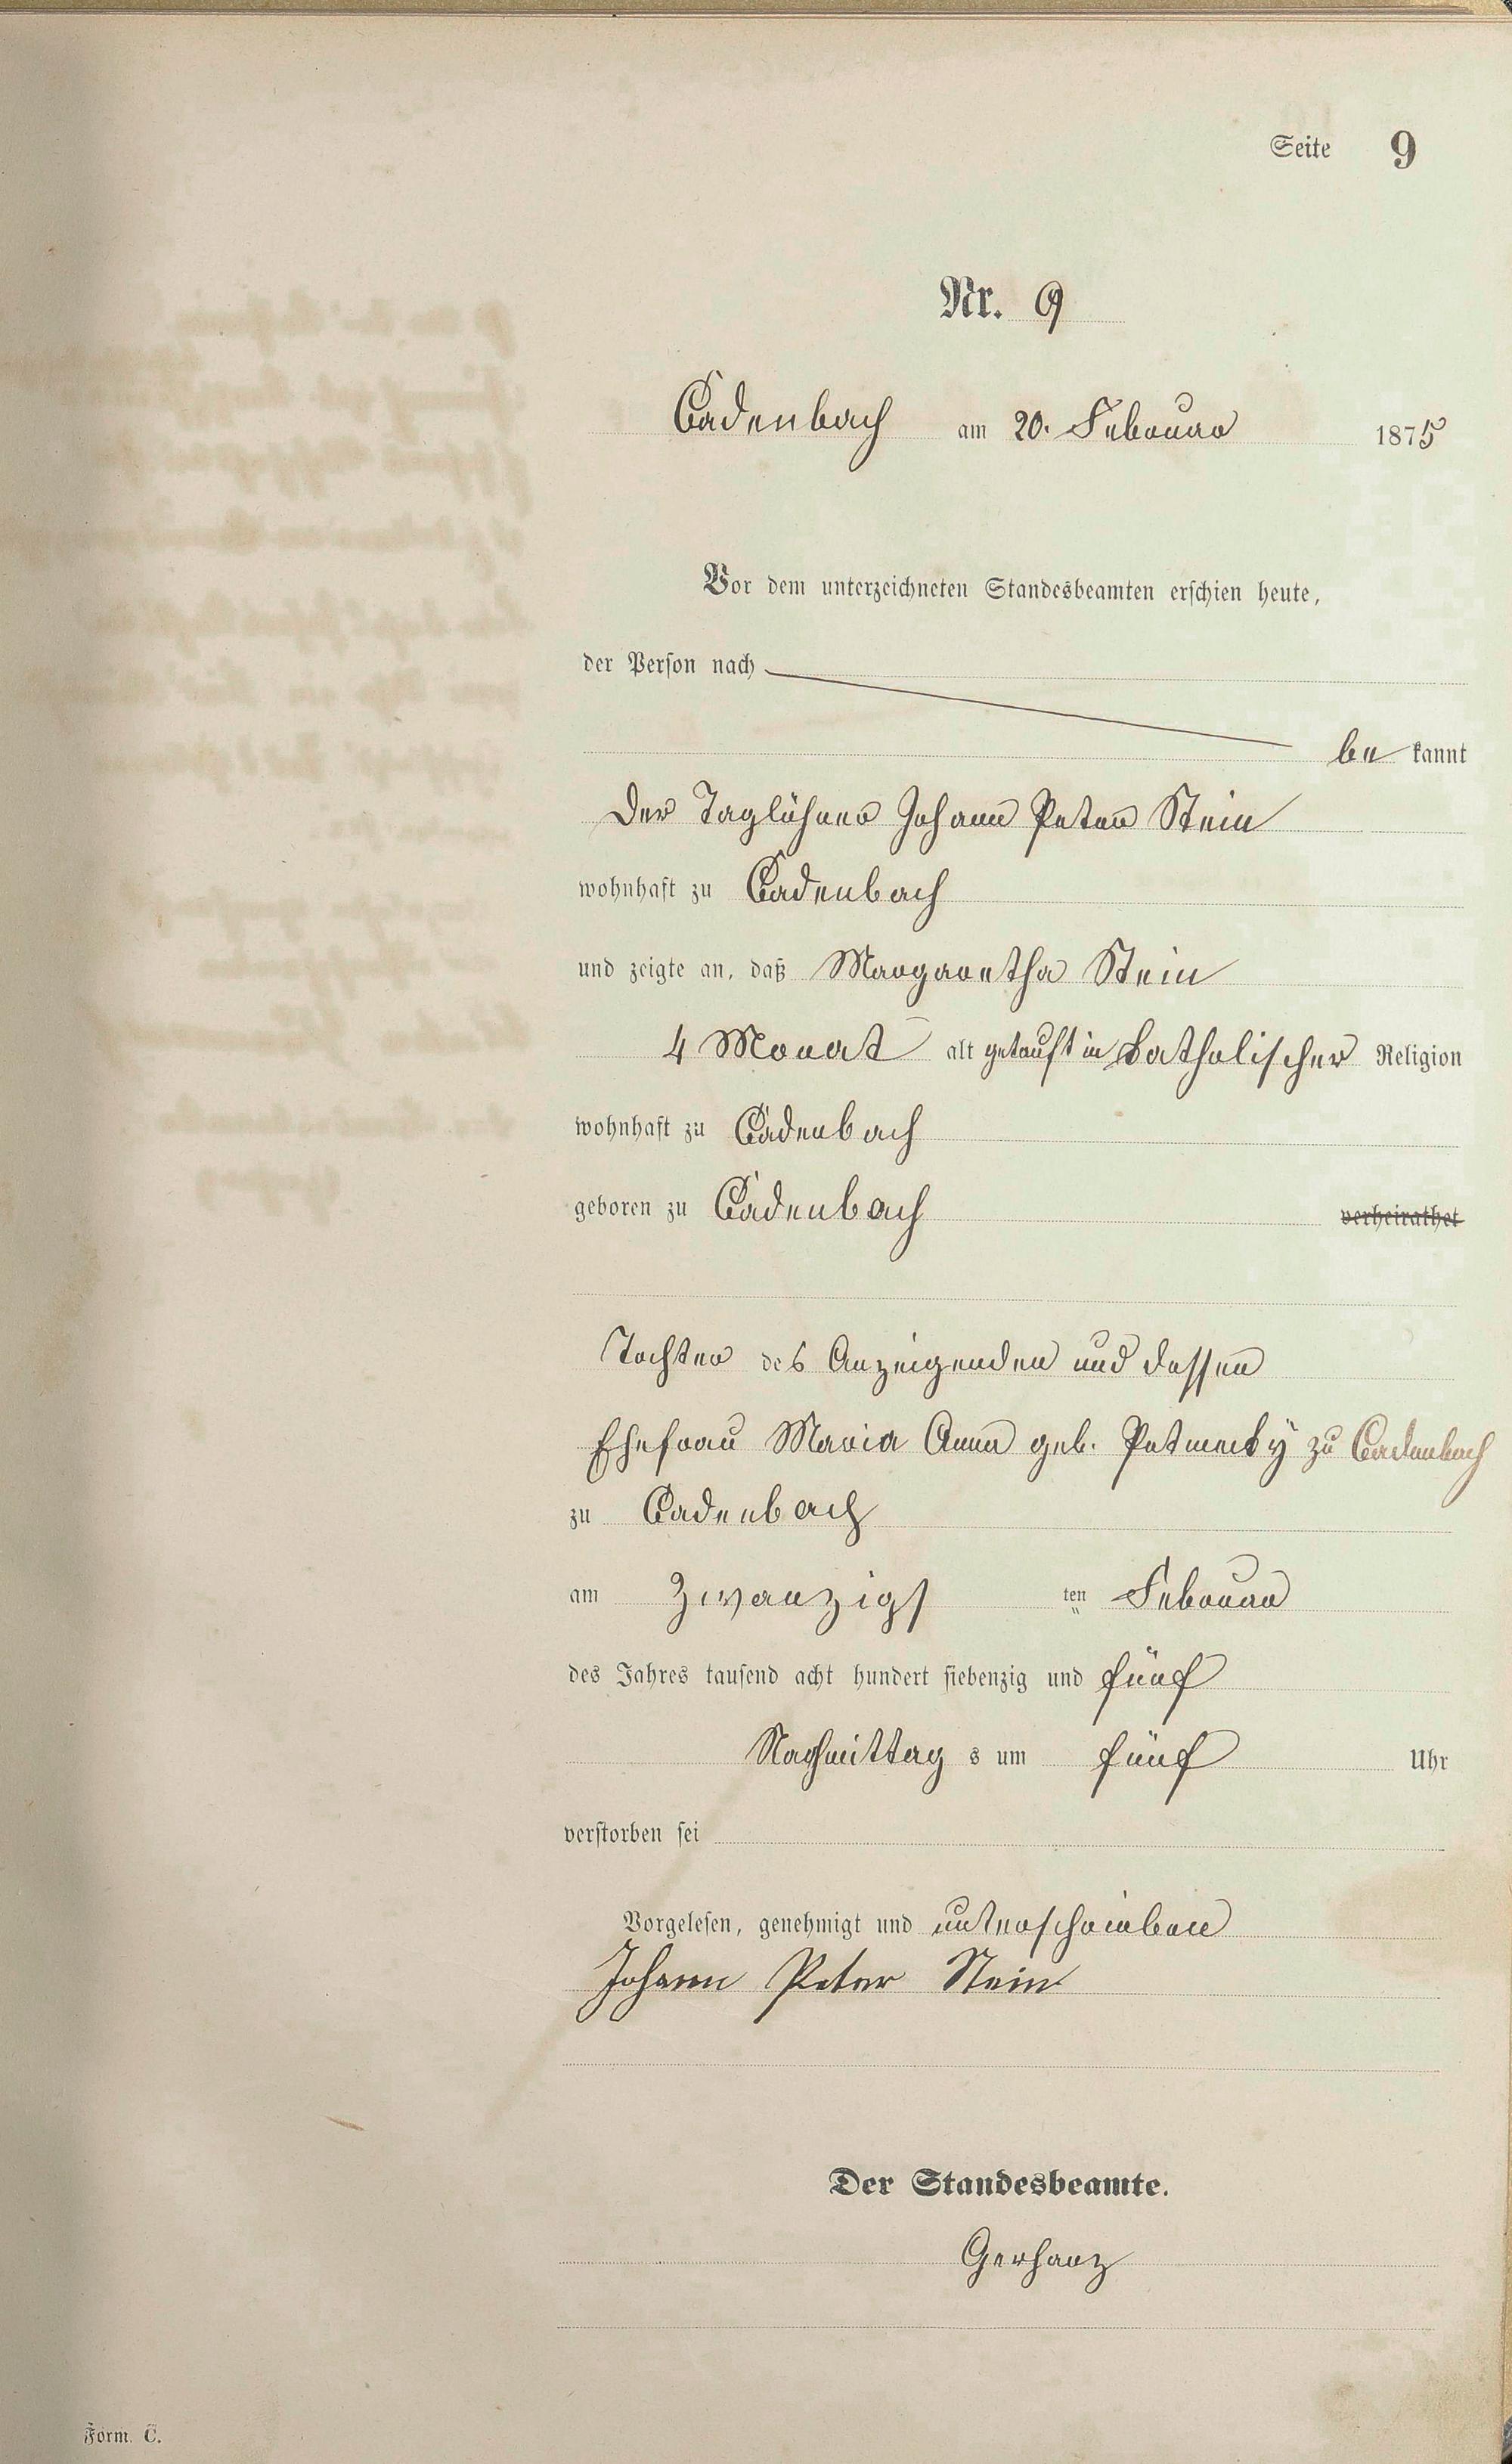 Seite 9
Nr. 9
Cadenbach am 20. Februar 1875
Vor dem unterzeichneten Standesbeamten erschien heute,
der Person nach
be kannt
Der Taglöhner Johann Peter Stein
wohnhaft zu Cadenbach
und zeigte an, daß Margaretha Stein
4 Monat alt getauft in katholischer Religion
wohnhaft zu Cadenbach
geboren zu Cadenbach verheirathet
Tochter des Anzeigenden und dessen
Ehefrau Maria Anna geb. Petmecky zu Cadenbach
zu Cadenbach
am zwanzigs ten Februar
des Jahres tausend acht hundert siebenzig und fünf
Nachmittag s um fünf Uhr
verstorben sei
Vorgelesen, genehmigt und unterschrieben
Johann Peter Stein
Der Standesbeamte.
Gerhanz
Form. C.